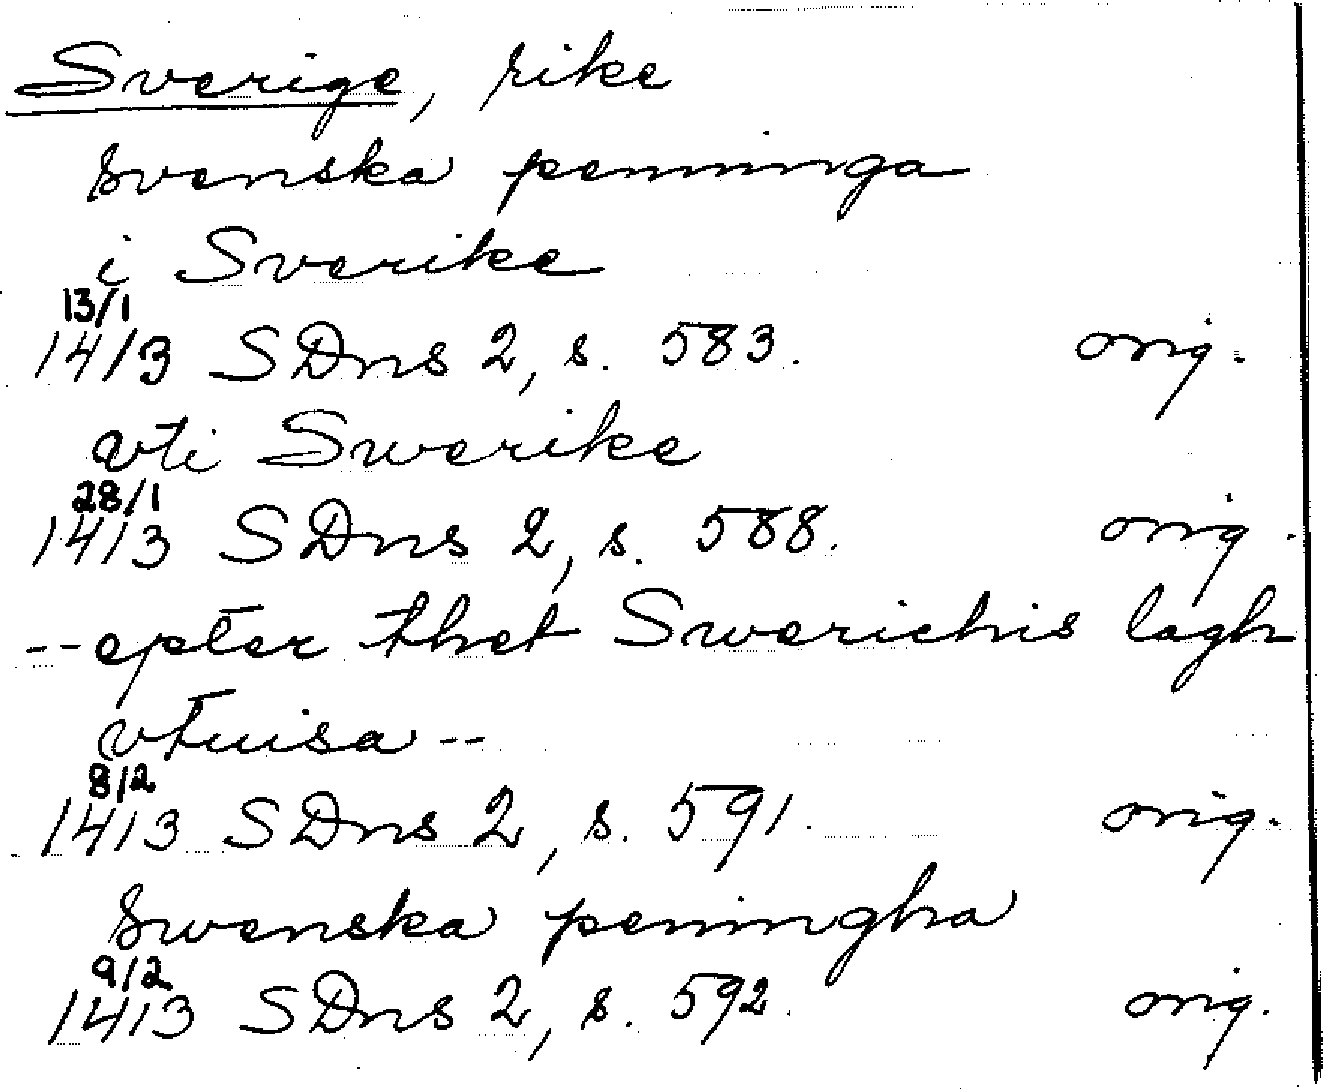 Sverige, rike
svenska penninga
i Sverike
13/1
1413 SDns 2, s. 583. orig.
vti Swerike
28/1
1413 SDns 2, s. 588. orig.
--epter thet Swerichis lagh
vtuisa--
8/2
1413 SDns 2, s. 591. orig.
swenska peningha
9/2
1413 SDns 2, s. 592. orig.